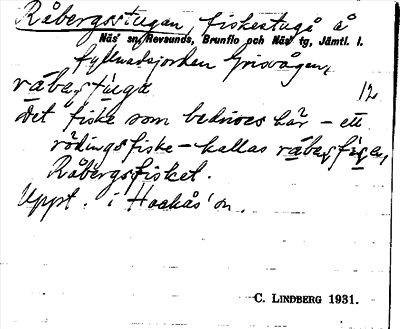 Råbergsstugan, fiskestuga å
Näs sn, Revsunds, Brunflo och Näs tg, Jämtl. l.
fyllnadsjorden Grisvågen,
råbastuga 12
Det fiske som bedrives här – ett
rödingsfiske – kallas
Råbergsfisket.
Uppt. i Hackås sn.
C. LINDBERG 1931.